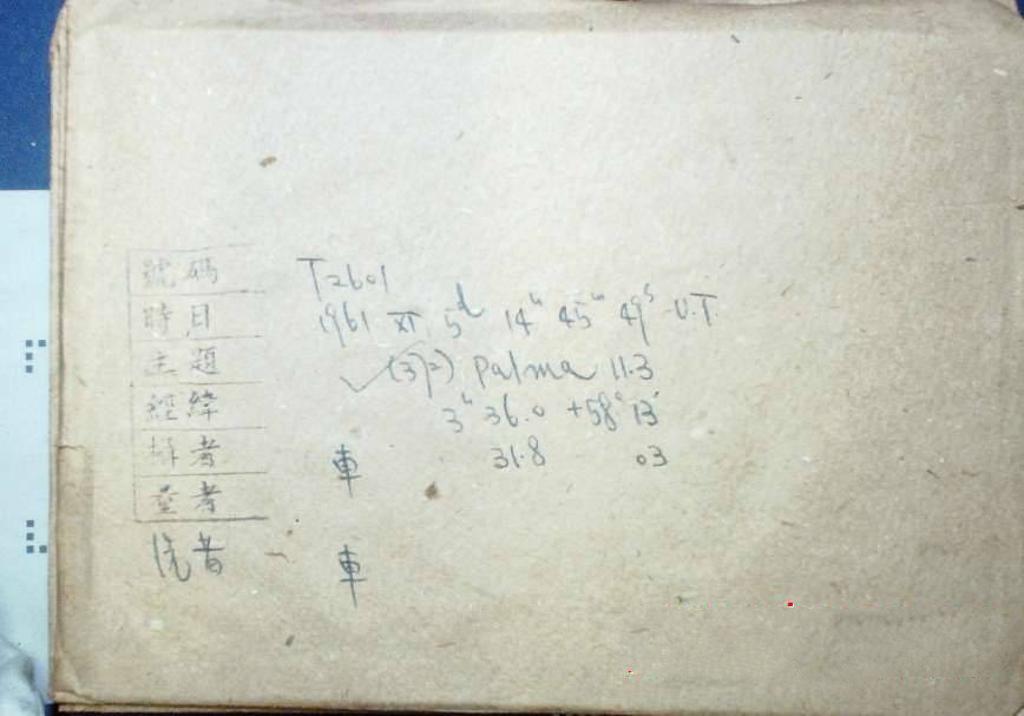 號碼 T2601
時日 1961 XI 5d 14h 45m 49s U.T.
主題 ✓ (372) Palma 11.3
經緯 3h 36.0 +58° 13'
攝者 車 31.8 03
量者
洗者 車